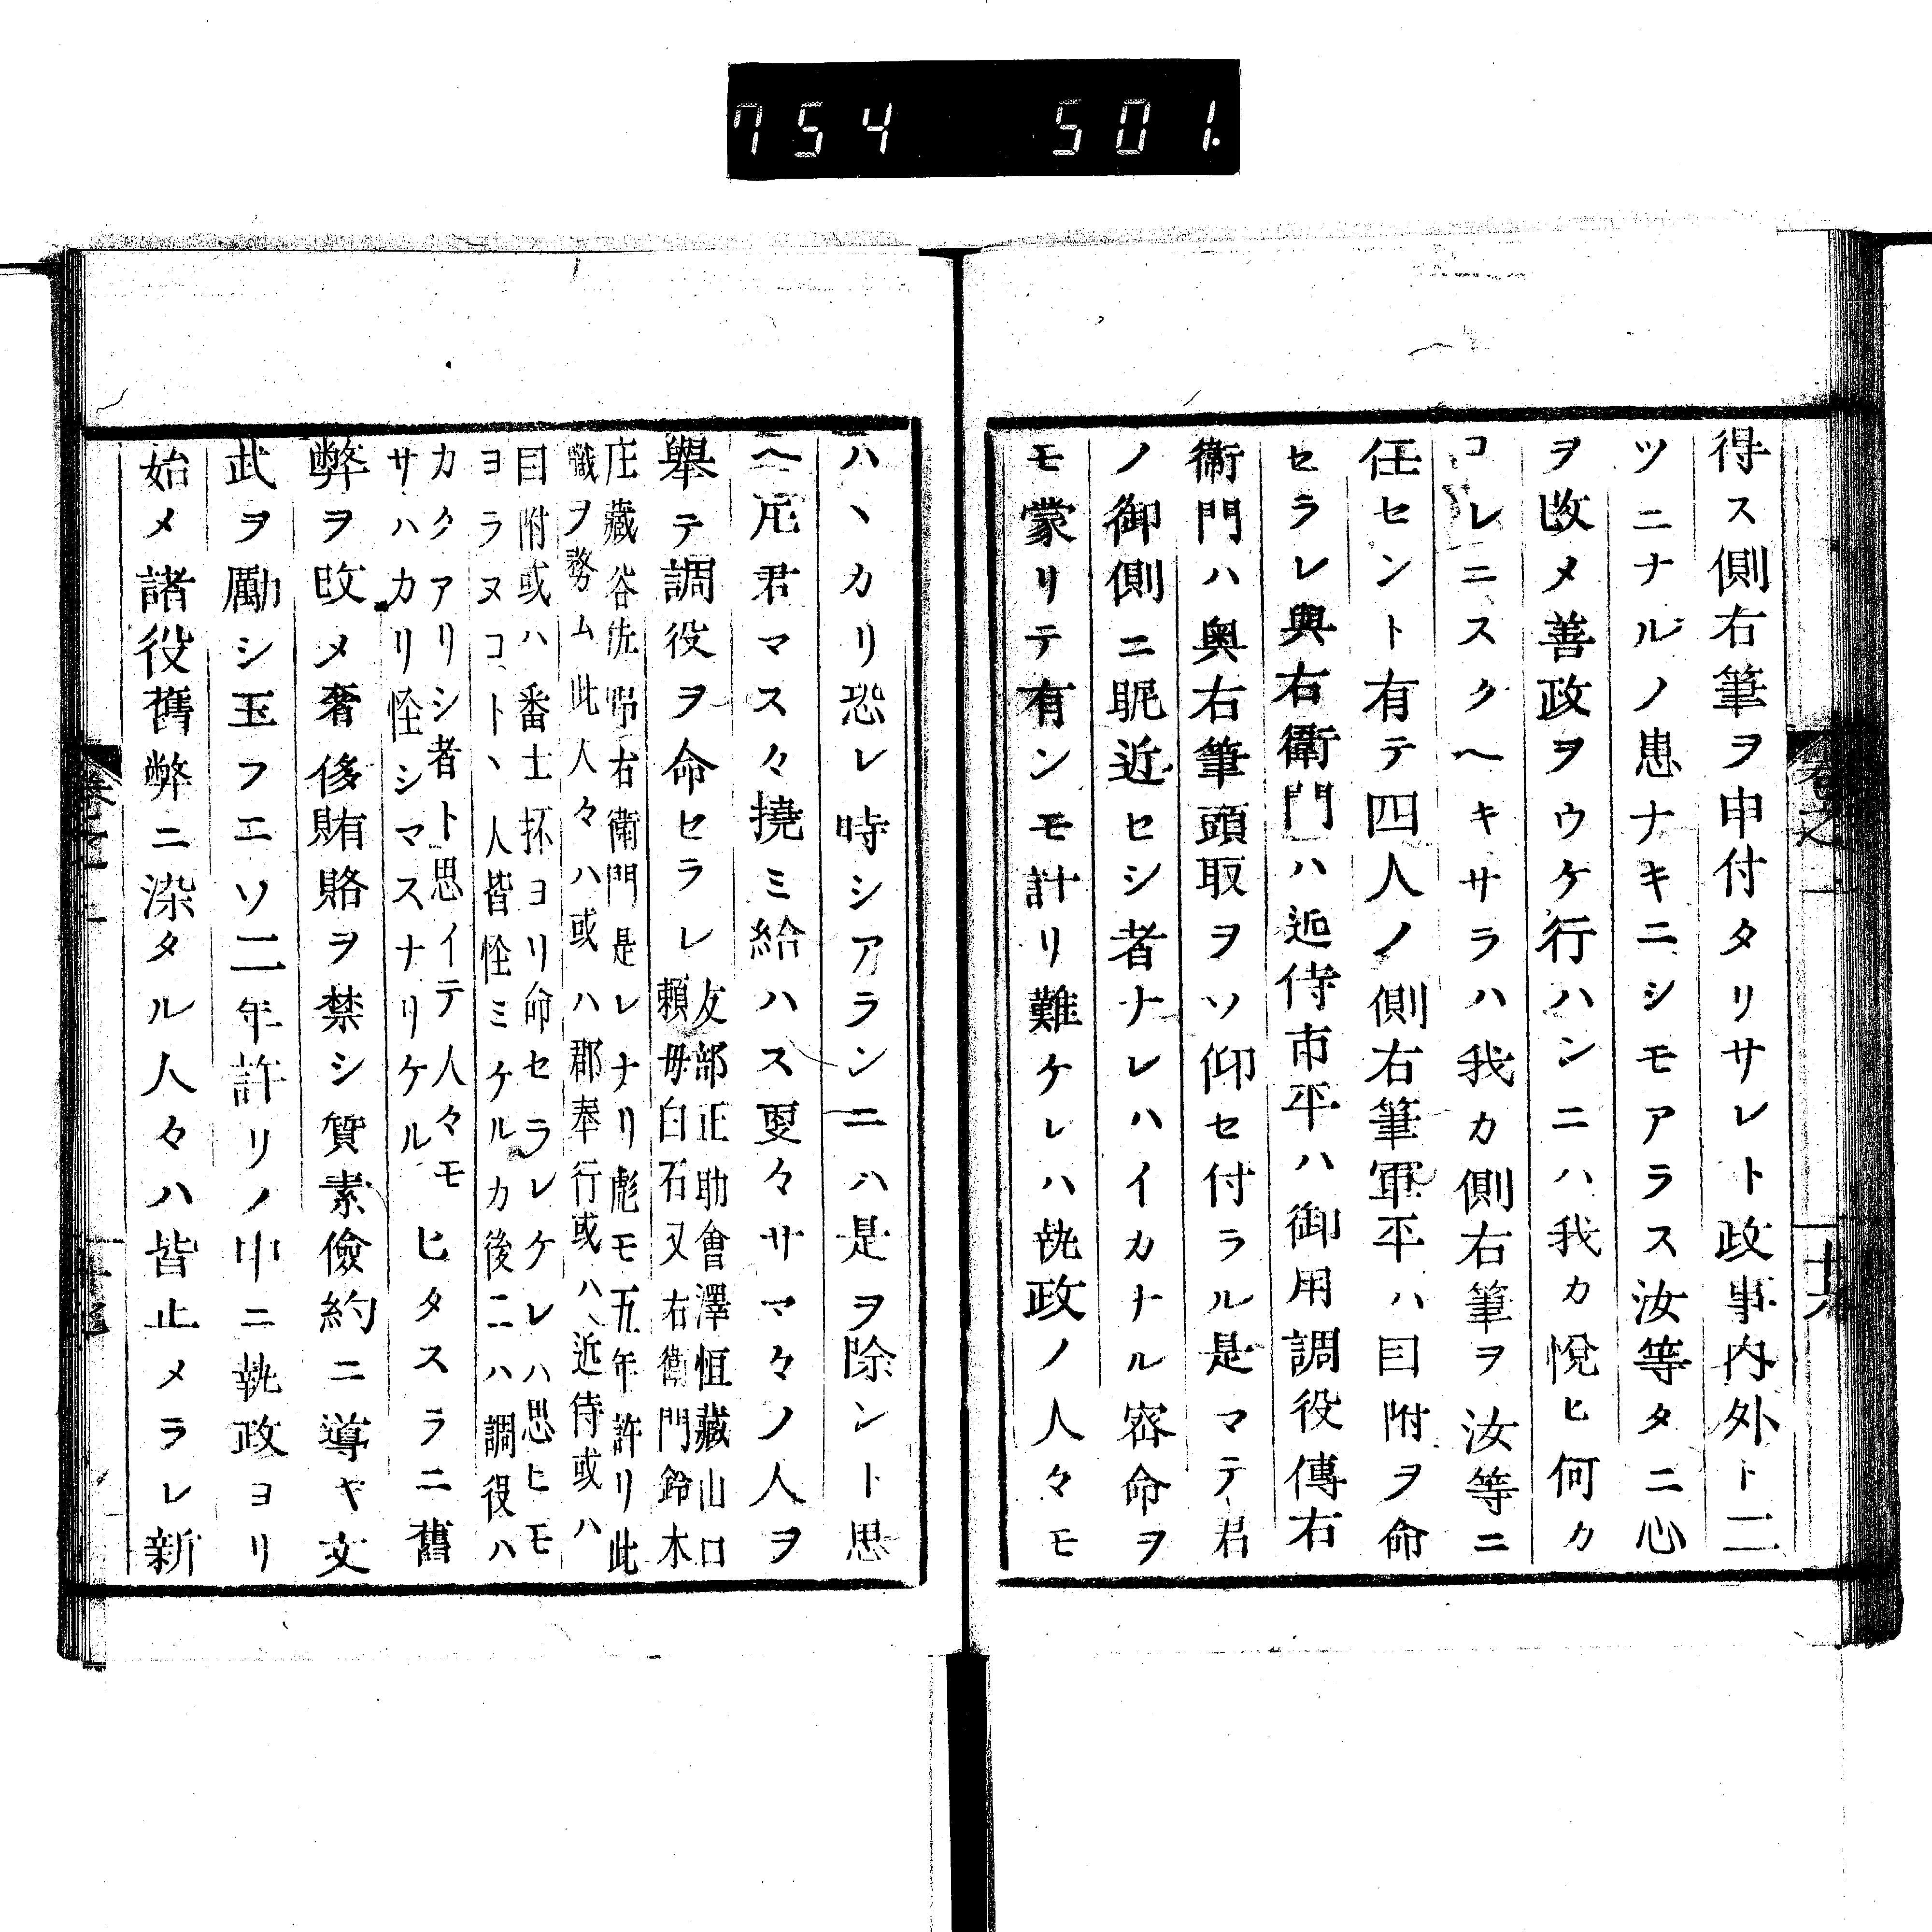 754 501.
得ス側右筆ヲ申付タリサレト政事內外ト二
ツニナルノ患ナキニシモアラス汝等タニ心
ヲ改メ善政ヲウケ行ハンニハ我カ悅ヒ何カ
コレニスクヘキサラハ我カ側右筆ヲ汝等ニ
任セント有テ四人ノ側右筆軍平ハ目附ヲ命
セラレ與右衞門ハ近侍市平ハ御用調役傳右
衞門ハ奥右筆頭取ヲソ仰セ付ラル是マテ君
ノ御側ニ昵近セシ者ナレハイカナル密命ヲ
モ蒙リテ有ンモ計リ難ケレハ執政ノ人々モ
ハヽカリ恐レ時シアランニハ是ヲ除ント思
ヘ𪜈君マス々撓ミ給ハス更々サマ々ノ人ヲ
舉テ調役ヲ命セラレ
友部正助會澤恒藏山口
賴母白石又右衞門鈴木
庄藏谷佐野右衞門是レナリ彪モ五年許リ此
職ヲ務ム此人々ハ或ハ郡奉行或ハ近侍或ハ
目附或ハ番士抔ヨリ命セラレケレハ思ヒモ
ヨラヌコトヽ人皆怪ミケルカ後ニハ調役ハ
カクアリシ者ト思イテ人々モ
サハカリ怪シマスナリケル
ヒタスラニ舊
弊ヲ改メ奢侈賄賂ヲ禁シ質素儉約ニ導キ文
武ヲ勵シ玉フエソ二年許リノ中ニ執政ヨリ
始メ諸役舊弊ニ染タル人々ハ皆止メラレ新